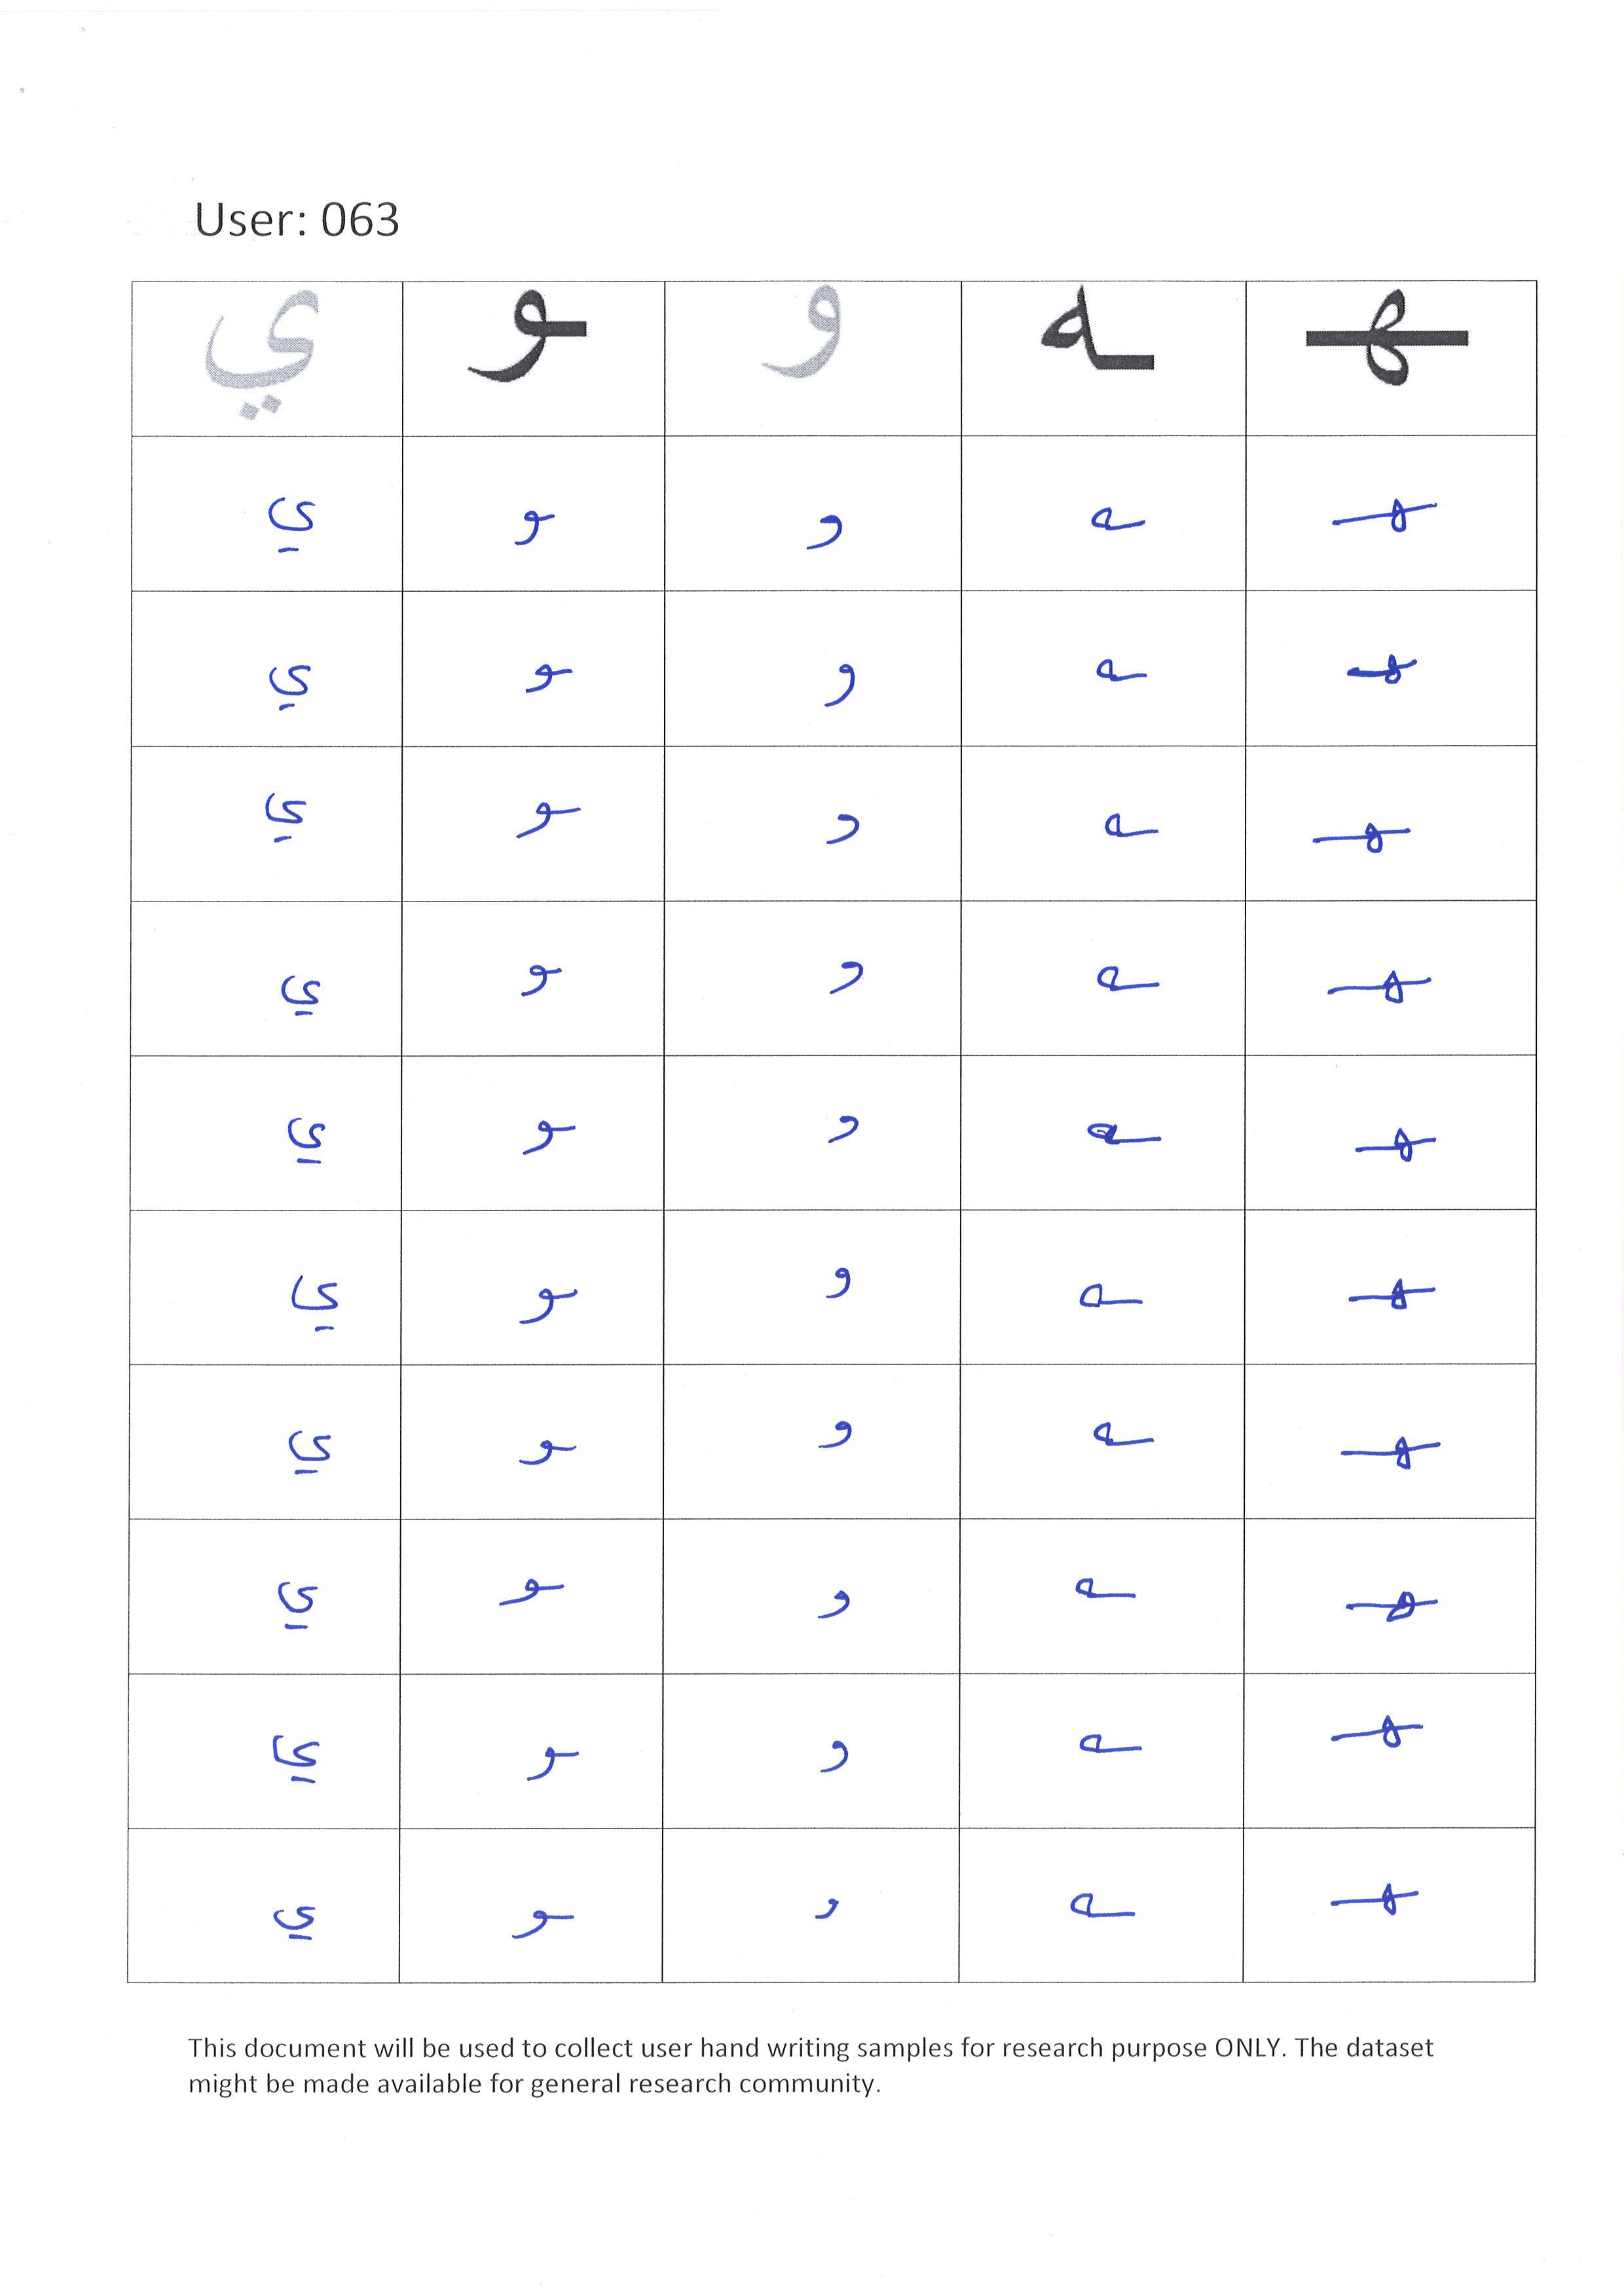 User: 063
ـهـ ـه و ـو ي
ـهـ ـه و ـو ي
ـهـ ـه و ـو ي
ـهـ ـه و ـو ي
ـهـ ـه و ـو ي
ـهـ ـه و ـو ي
ـهـ ـه و ـو ي
ـهـ ـه و ـو ي
ـهـ ـه و ـو ي
ـهـ ـه و ـو ي
ـهـ ـه و ـو ي
This document will be used to collect user hand writing samples for research purpose ONLY. The dataset
might be made available for general research community.